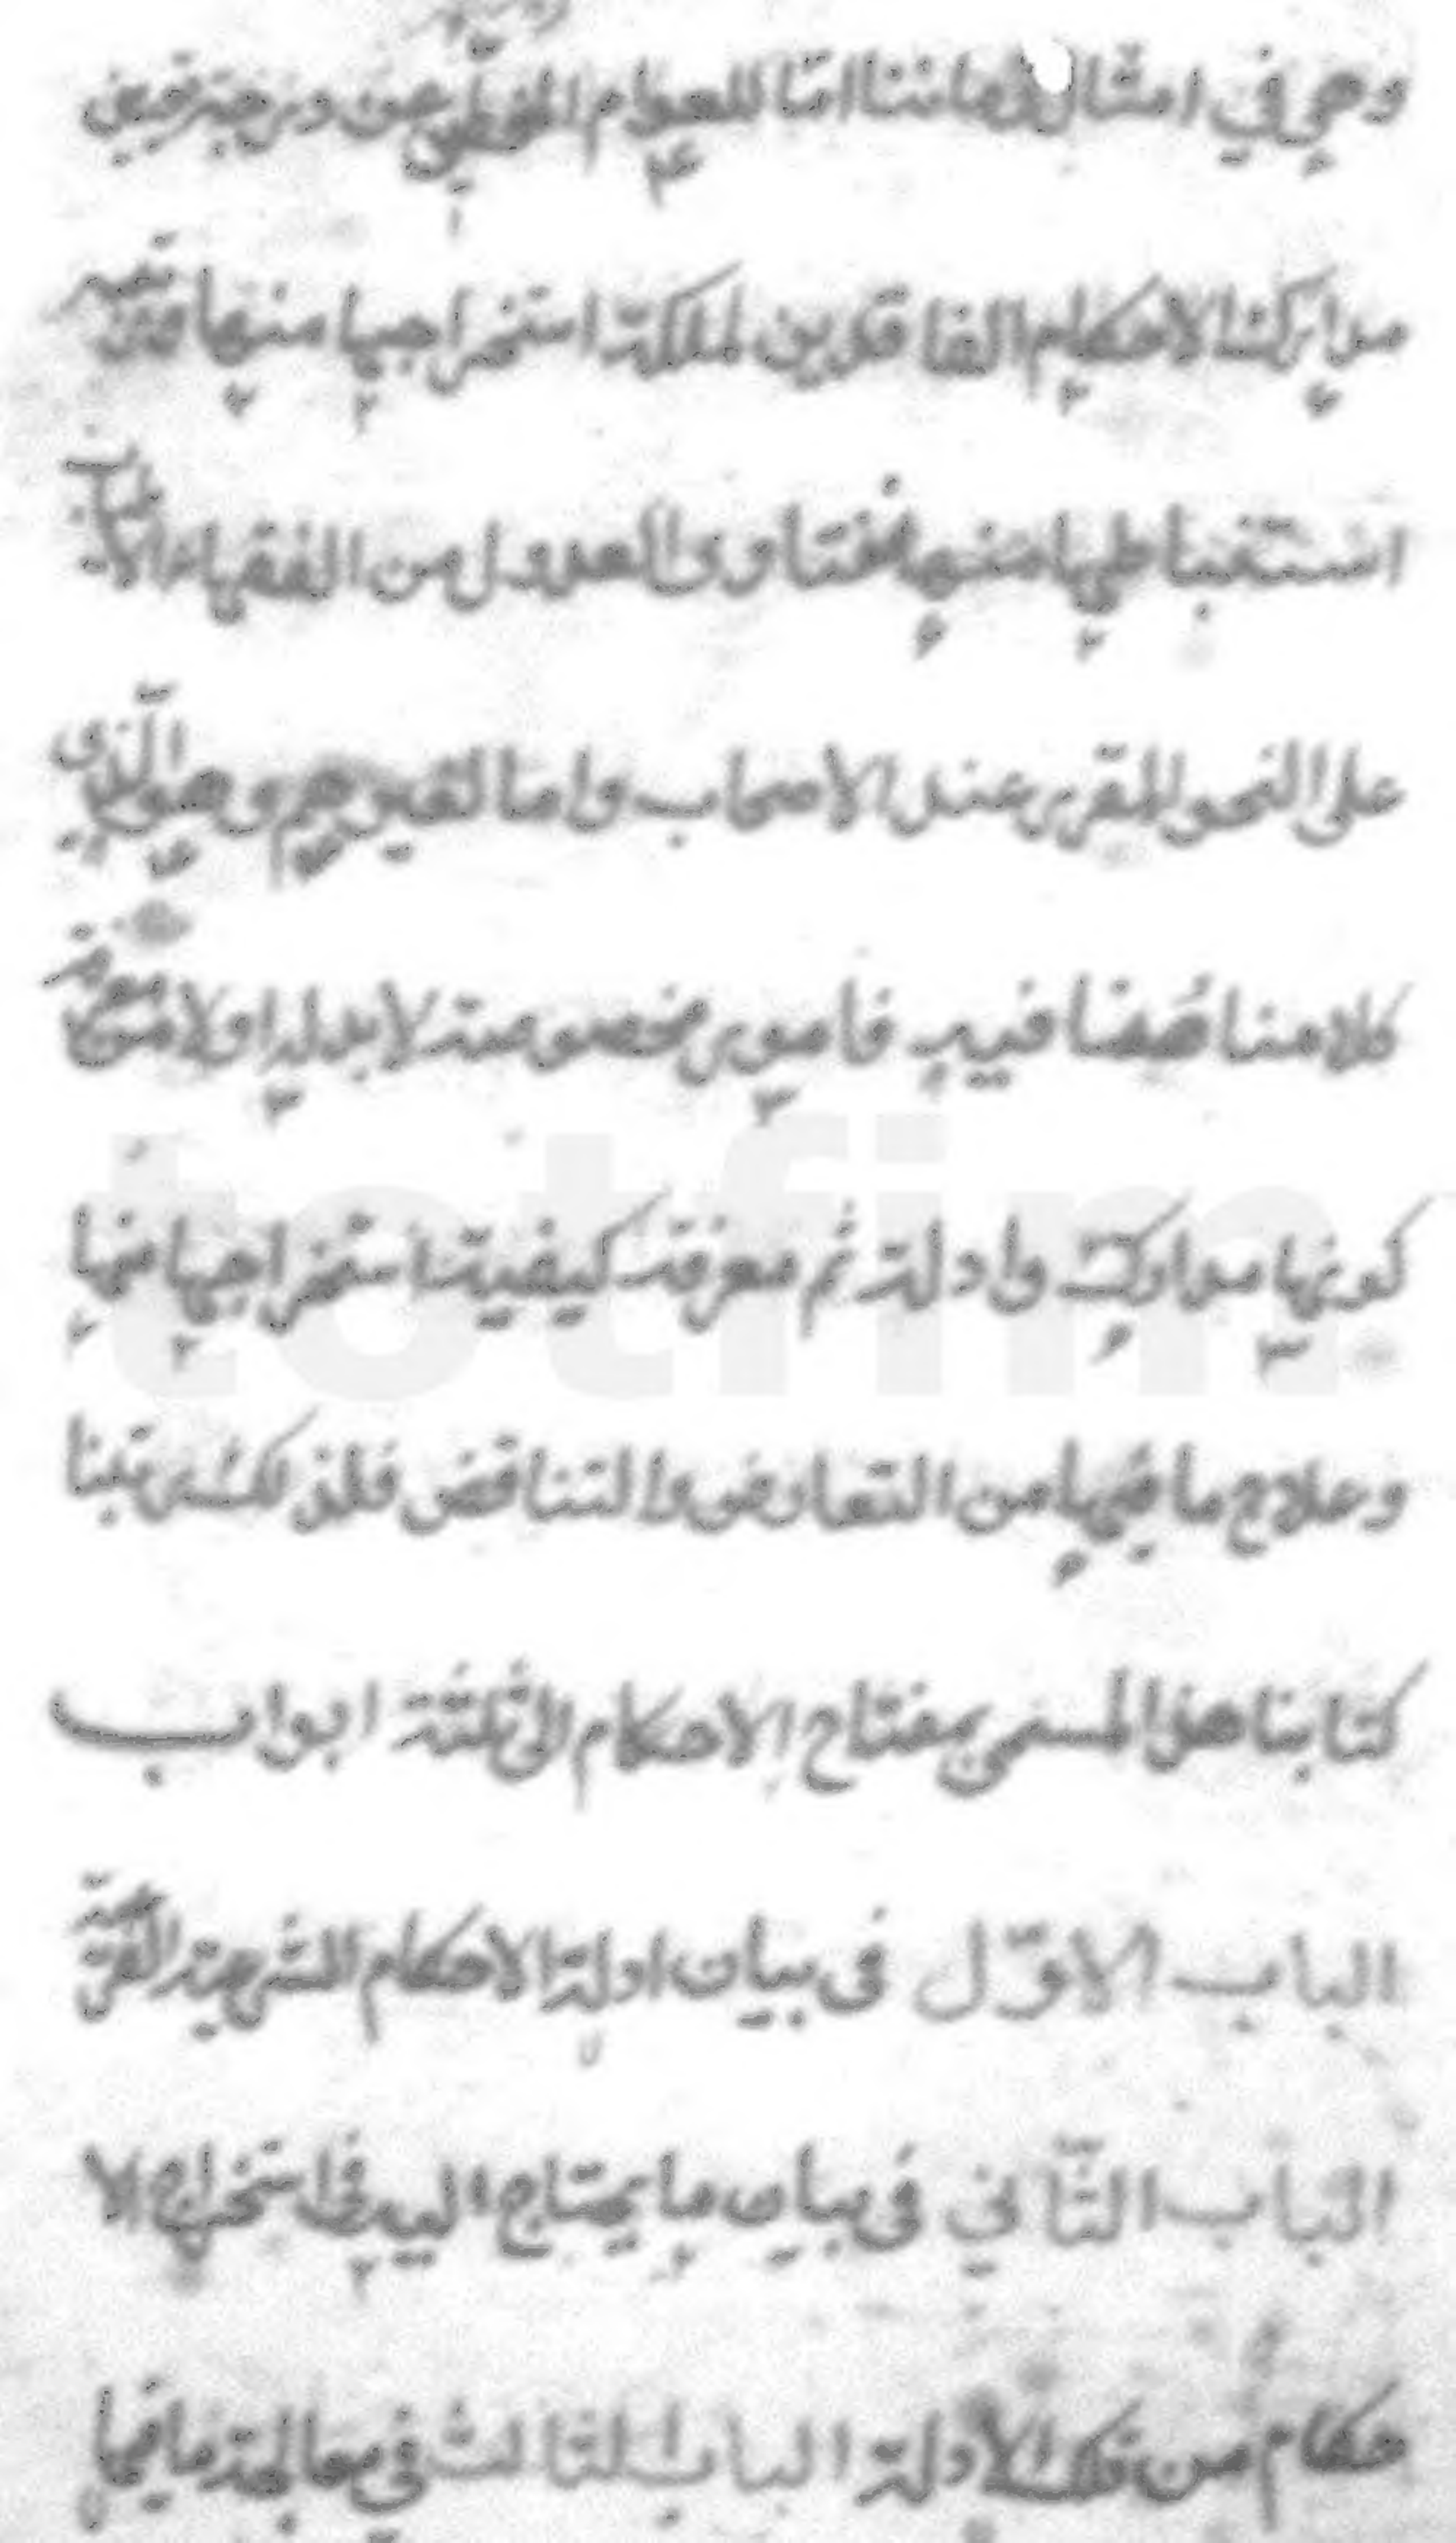 وهي في امثال زماننا امّا للعوام المنحطّين عن درجة معرفة
مدارك الاحكام الفاقدين لملكة استخراجها منها وقوّة
استنباطها منها ففتاوى العدول من الفقهاء الاطياب
على النحو المقرر عند الاصحاب واما لغيرهم وهو الذي
كلامنا هُنا فيه فامور مخصوصة لابد له اولا من معرفة
كونها مدارك وادلة ثم معرفة كيفية استخراجها منها
وعلاج ما فيها من التعارض والتناقض فلذلك رتبنا
كتابنا هذا المسمى بمفتاح الاحكام الى ثلثة ابواب
الباب الاوّل في بيان ادلة الاحكام الشرعية الفرعية
الباب الثّاني في بيان ما يحتاج اليه في استخراج الا
حكام من تلك الادلة الباب الثالث في معالجة ما فيها
totfim